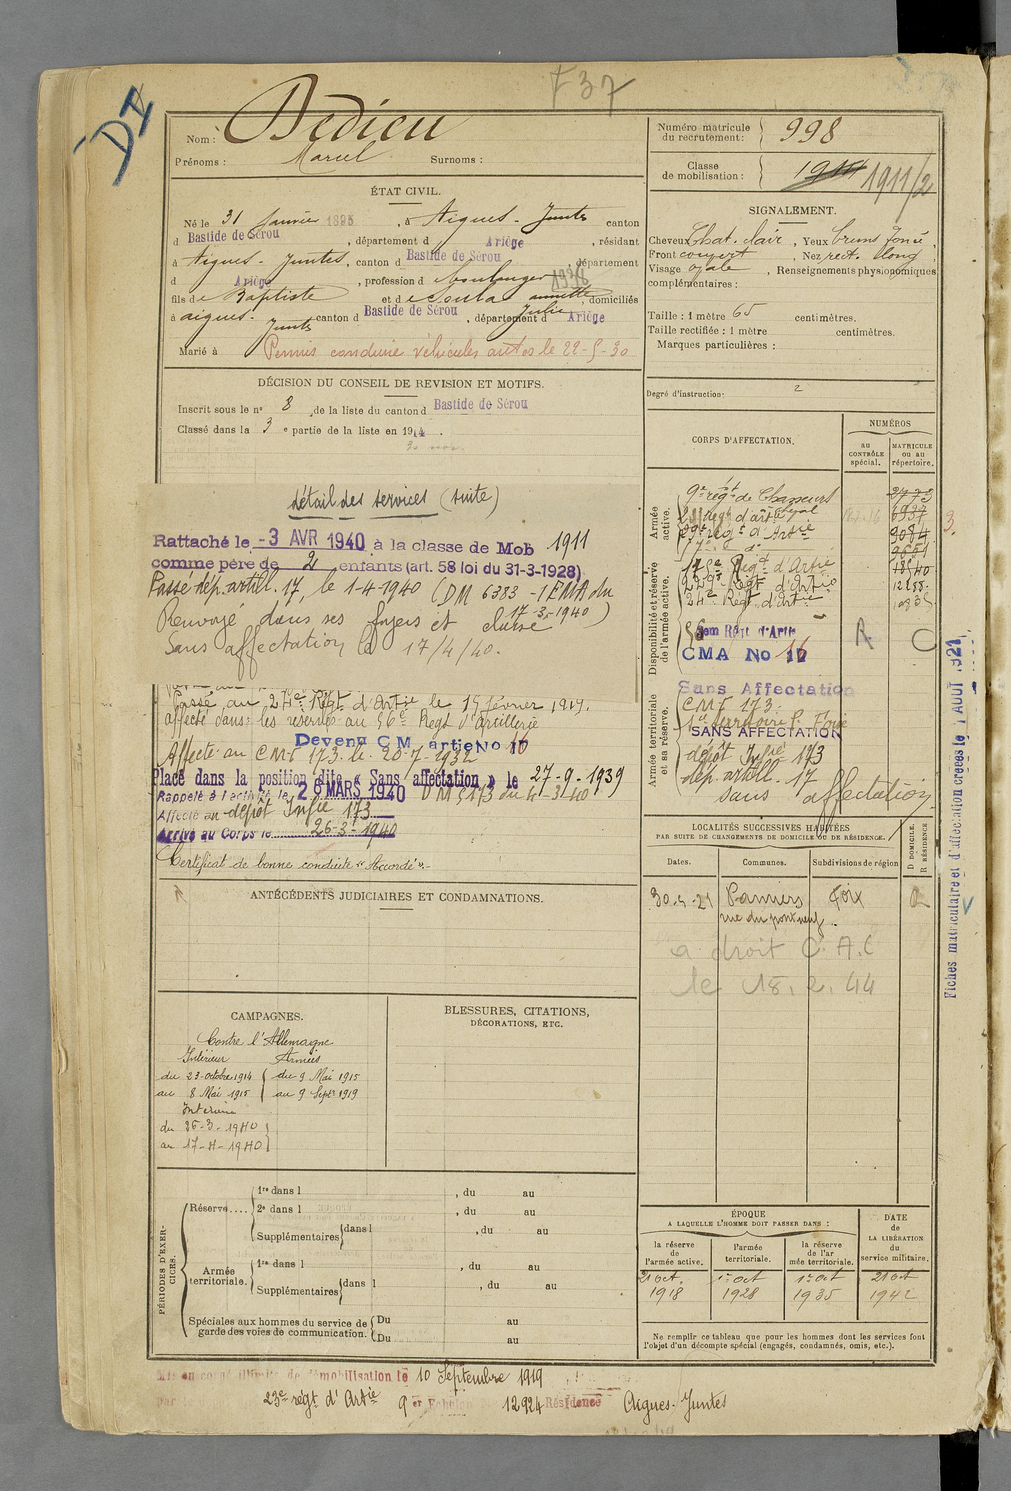 F37
DI
Nom : Dedieu
Prénoms : Marcel Surnoms :
Numéro matricule du recrutement : 998
Classe de mobilisation : 1914 1911/2
ÉTAT CIVIL.
Né le 31 Janvier 1895, à Aigues-Juntes canton
d Bastide de Sérou, département d Ariège, résidant
à Aigues-Juntes, canton d Bastide de Sérou, département
d Ariège, profession d boulanger
fils de Baptiste et de Soula annette, domiciliés
Julie
à aigues-Juntes canton d Bastide de Sérou, département d Ariège
Marié à
Permis conduire véhicules autos le 22-5-30
SIGNALEMENT.
Cheveux Chat. clair, Yeux bruns foncé,
Front couvert, Nez rect. long,
Visage ovale, Renseignements physionomiques
complémentaires :
Taille : 1 mètre 65 centimètres.
Taille rectifiée : 1 mètre centimètres.
Marques particulières :
Degré d'instruction : 2
DÉCISION DU CONSEIL DE REVISION ET MOTIFS.
Inscrit sous le n° 8 de la liste du canton d Bastide de Sérou
Classé dans la 3e partie de la liste en 1914.
détail des services (suite)
Rattaché le -3 AVR 1940 à la classe de Mob 1911
comme père de 2 enfants (art. 58 loi du 31-3-1928)
Passé dép. artill. 17 le 1-4-1940 (DM 6383 -1 EMA du
17-3-1940)
Renvoyé dans ses foyers et classé
Sans affectation le 17/4/40.
Passé au 24e Régt d'Artie le 15 février 1919.
affecté dans les réserves au 56e Régt d'artillerie
Devenu CM artie No 16
Affecté au CMI 173 le 20-7-1932
Placé dans la position dite « Sans affectation » le 27-9-1939
Rappelé à l'activité le 26 MARS 1940 DM 5173 du 4-3-40
Affecté au dépôt Infie 173
Arrivé au Corps le 26-3-1940
Certificat de bonne conduite « Accordé ».
CORPS D'AFFECTATION.
NUMÉROS
au CONTRÔLE spécial.
MATRICULE ou au répertoire.
Armée active.
9e régt de Chasseurs
29e régt d'Artie
Disponibilité et réserve de l'armée active.
Régt d'Artie
24e Régt d'Artie
CMA No 16
A C
Armée territoriale et sa réserve.
Sans Affectation
CMI 173
SANS AFFECTATION
dépôt Infie 173
dép. artill. 17
sans affectation
LOCALITÉS SUCCESSIVES HABITÉES
PAR SUITE DE CHANGEMENTS DE DOMICILE OU DE RÉSIDENCE.
Dates. Communes. Subdivisions de région D. DOMICILE. R. RÉSIDENCE
Pamiers Foix
rue du pont neuf
a droit C.A.C
le 18.2.44
Fiches matriculaire et d'affectation créées le 1 AOUT 1921
ANTÉCÉDENTS JUDICIAIRES ET CONDAMNATIONS.
CAMPAGNES.
Contre l'Allemagne
Intérieur Armées
du 23 octobre 1914 du 9 Mai 1915
au 8 Mai 1915 au 9 Sept 1919
Interieur
du 26-3-1940
au 17-4-1940
BLESSURES, CITATIONS,
DÉCORATIONS, ETC.
PÉRIODES D'EXERCICES.
Réserve....
1re dans l , du au
2e dans l , du au
Supplémentaires dans l , du au
Armée territoriale.
1re dans l , du au
Supplémentaires dans l , du au
Spéciales aux hommes du service de
garde des voies de communication.
Du au
Du au
ÉPOQUE
A LAQUELLE L'HOMME DOIT PASSER DANS :
la réserve de l'armée active.
l'armée territoriale.
la réserve de l'armée territoriale.
DATE de LA LIBÉRATION du service militaire.
21 oct. 1918
1er oct 1928
1er oct 1935
21 oct 1942
Ne remplir ce tableau que pour les hommes dont les services font
l'objet d'un décompte spécial (engagés, condamnés, omis, etc.).
Mis en congé illimité de démobilisation le 10 Septembre 1919
23e régt d'Artie 9er Echelon 12924 Résidence Aigues-Juntes